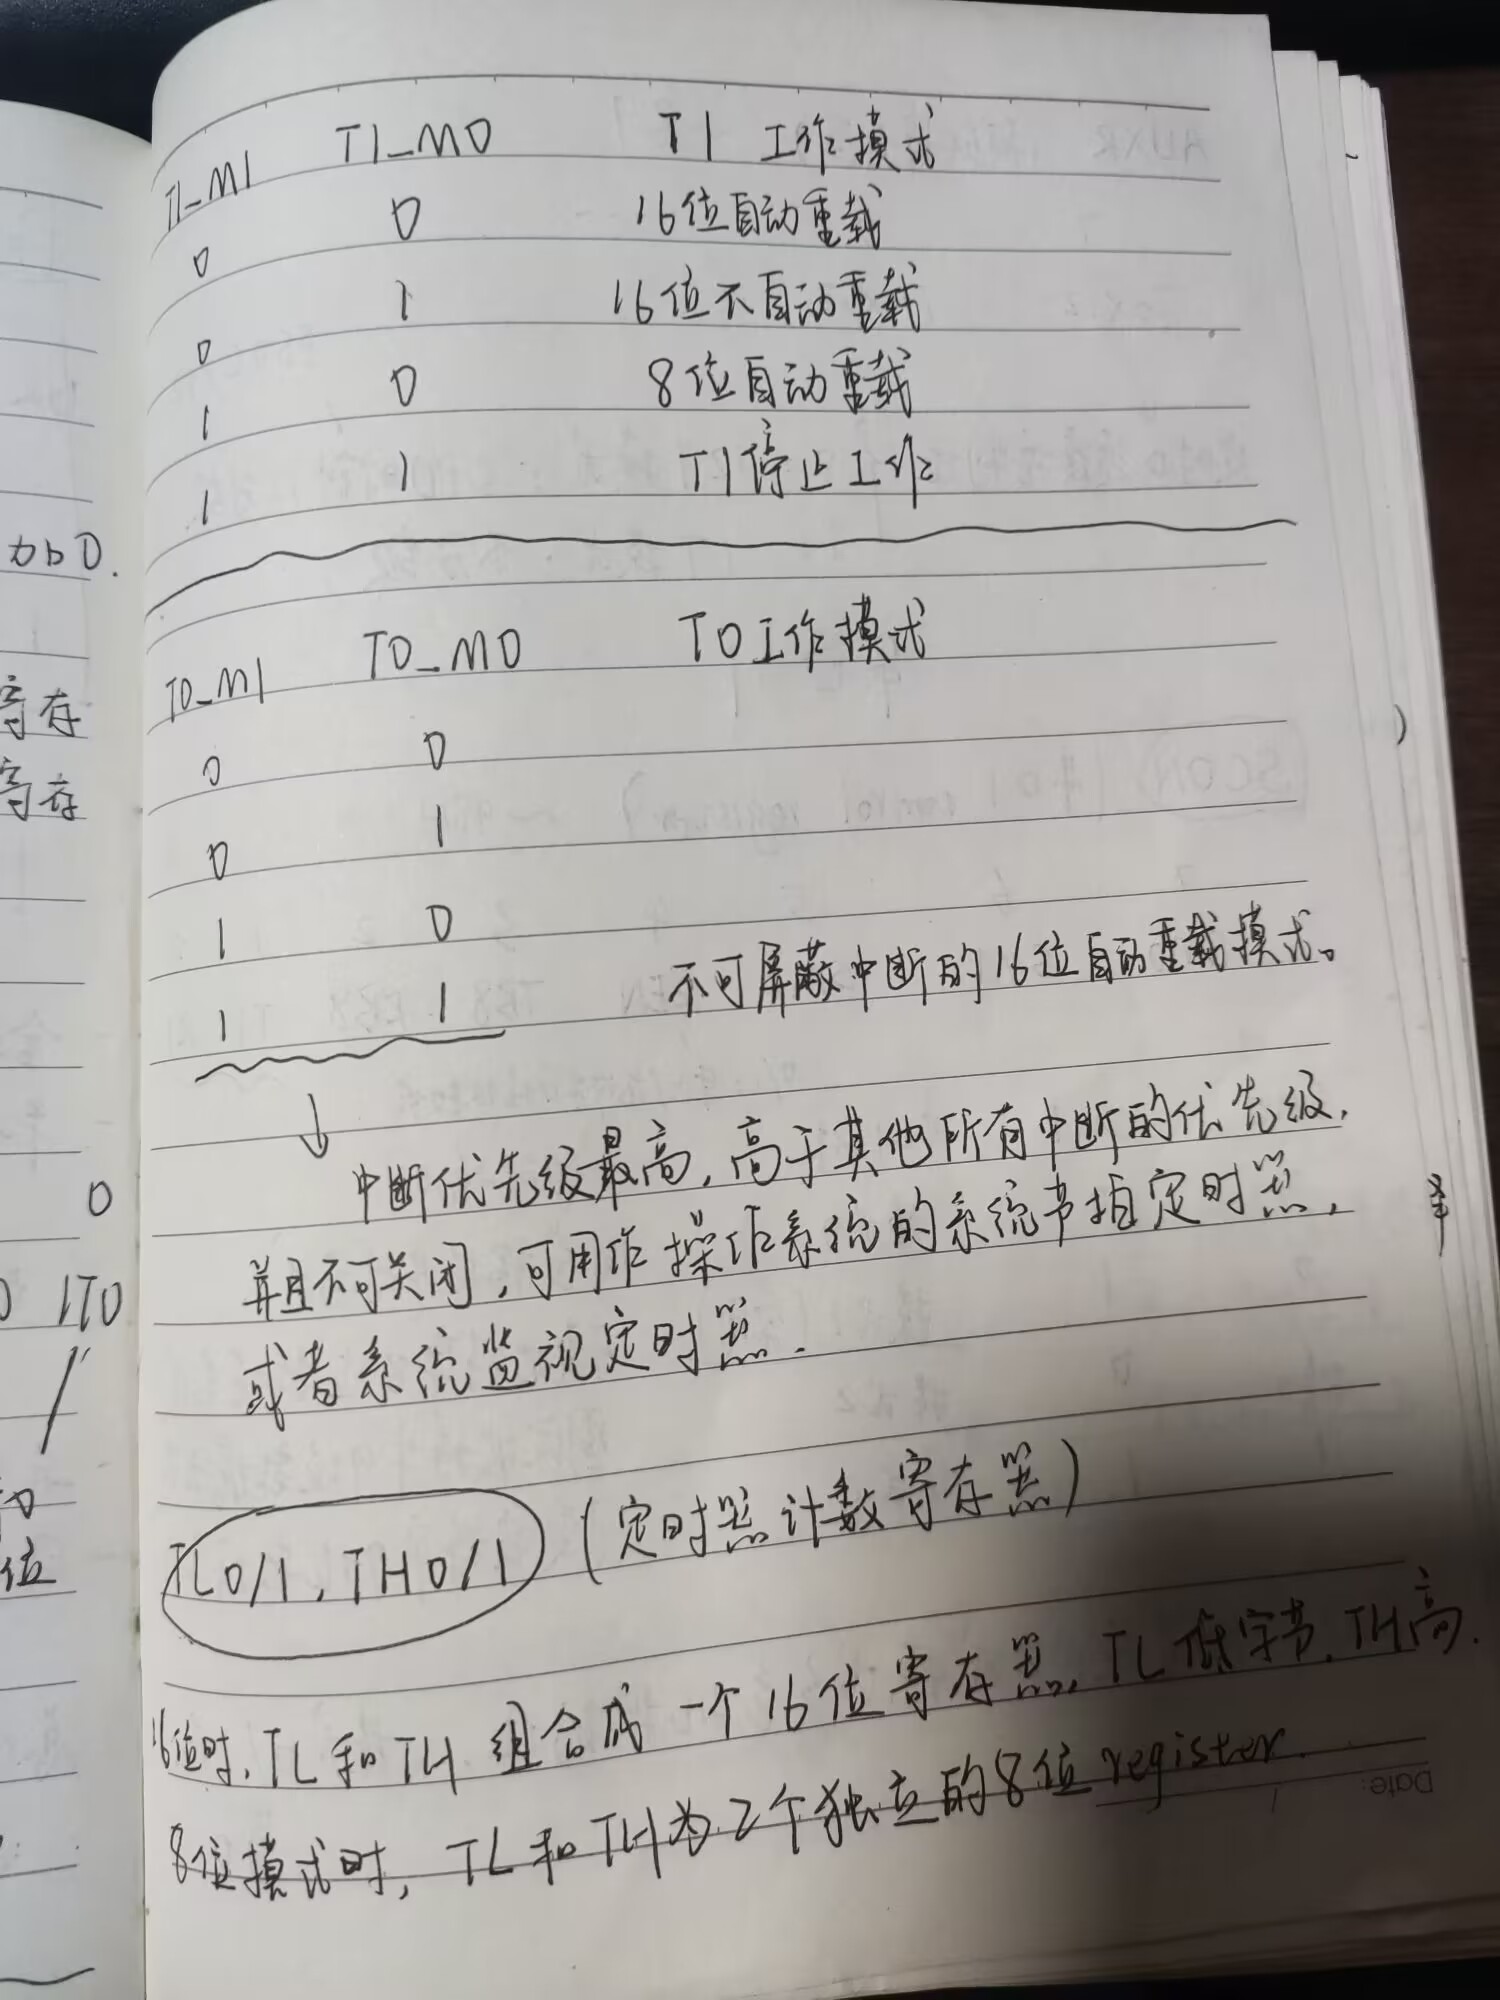 T1_M1 T1_M0 T1 工作模式
0 0 16位自动重载
0 1 16位不自动重载
1 0 8位自动重载
1 1 T1停止工作
T0_M1 T0_M0 T0工作模式
0 0
0 1
1 0
1 1 不可屏蔽中断的16位自动重载模式。
↓
中断优先级最高,高于其他所有中断的优先级,
并且不可关闭,可用作操作系统的系统节拍定时器,
或者系统监视定时器.
TL0/1, TH0/1 (定时器计数寄存器)
16位时, TL和TH 组合成一个16位寄存器, TL低字节, TH高.
8位模式时, TL和TH为2个独立的8位register.
Date:
为0.
寄存
寄存
0
IT0
位